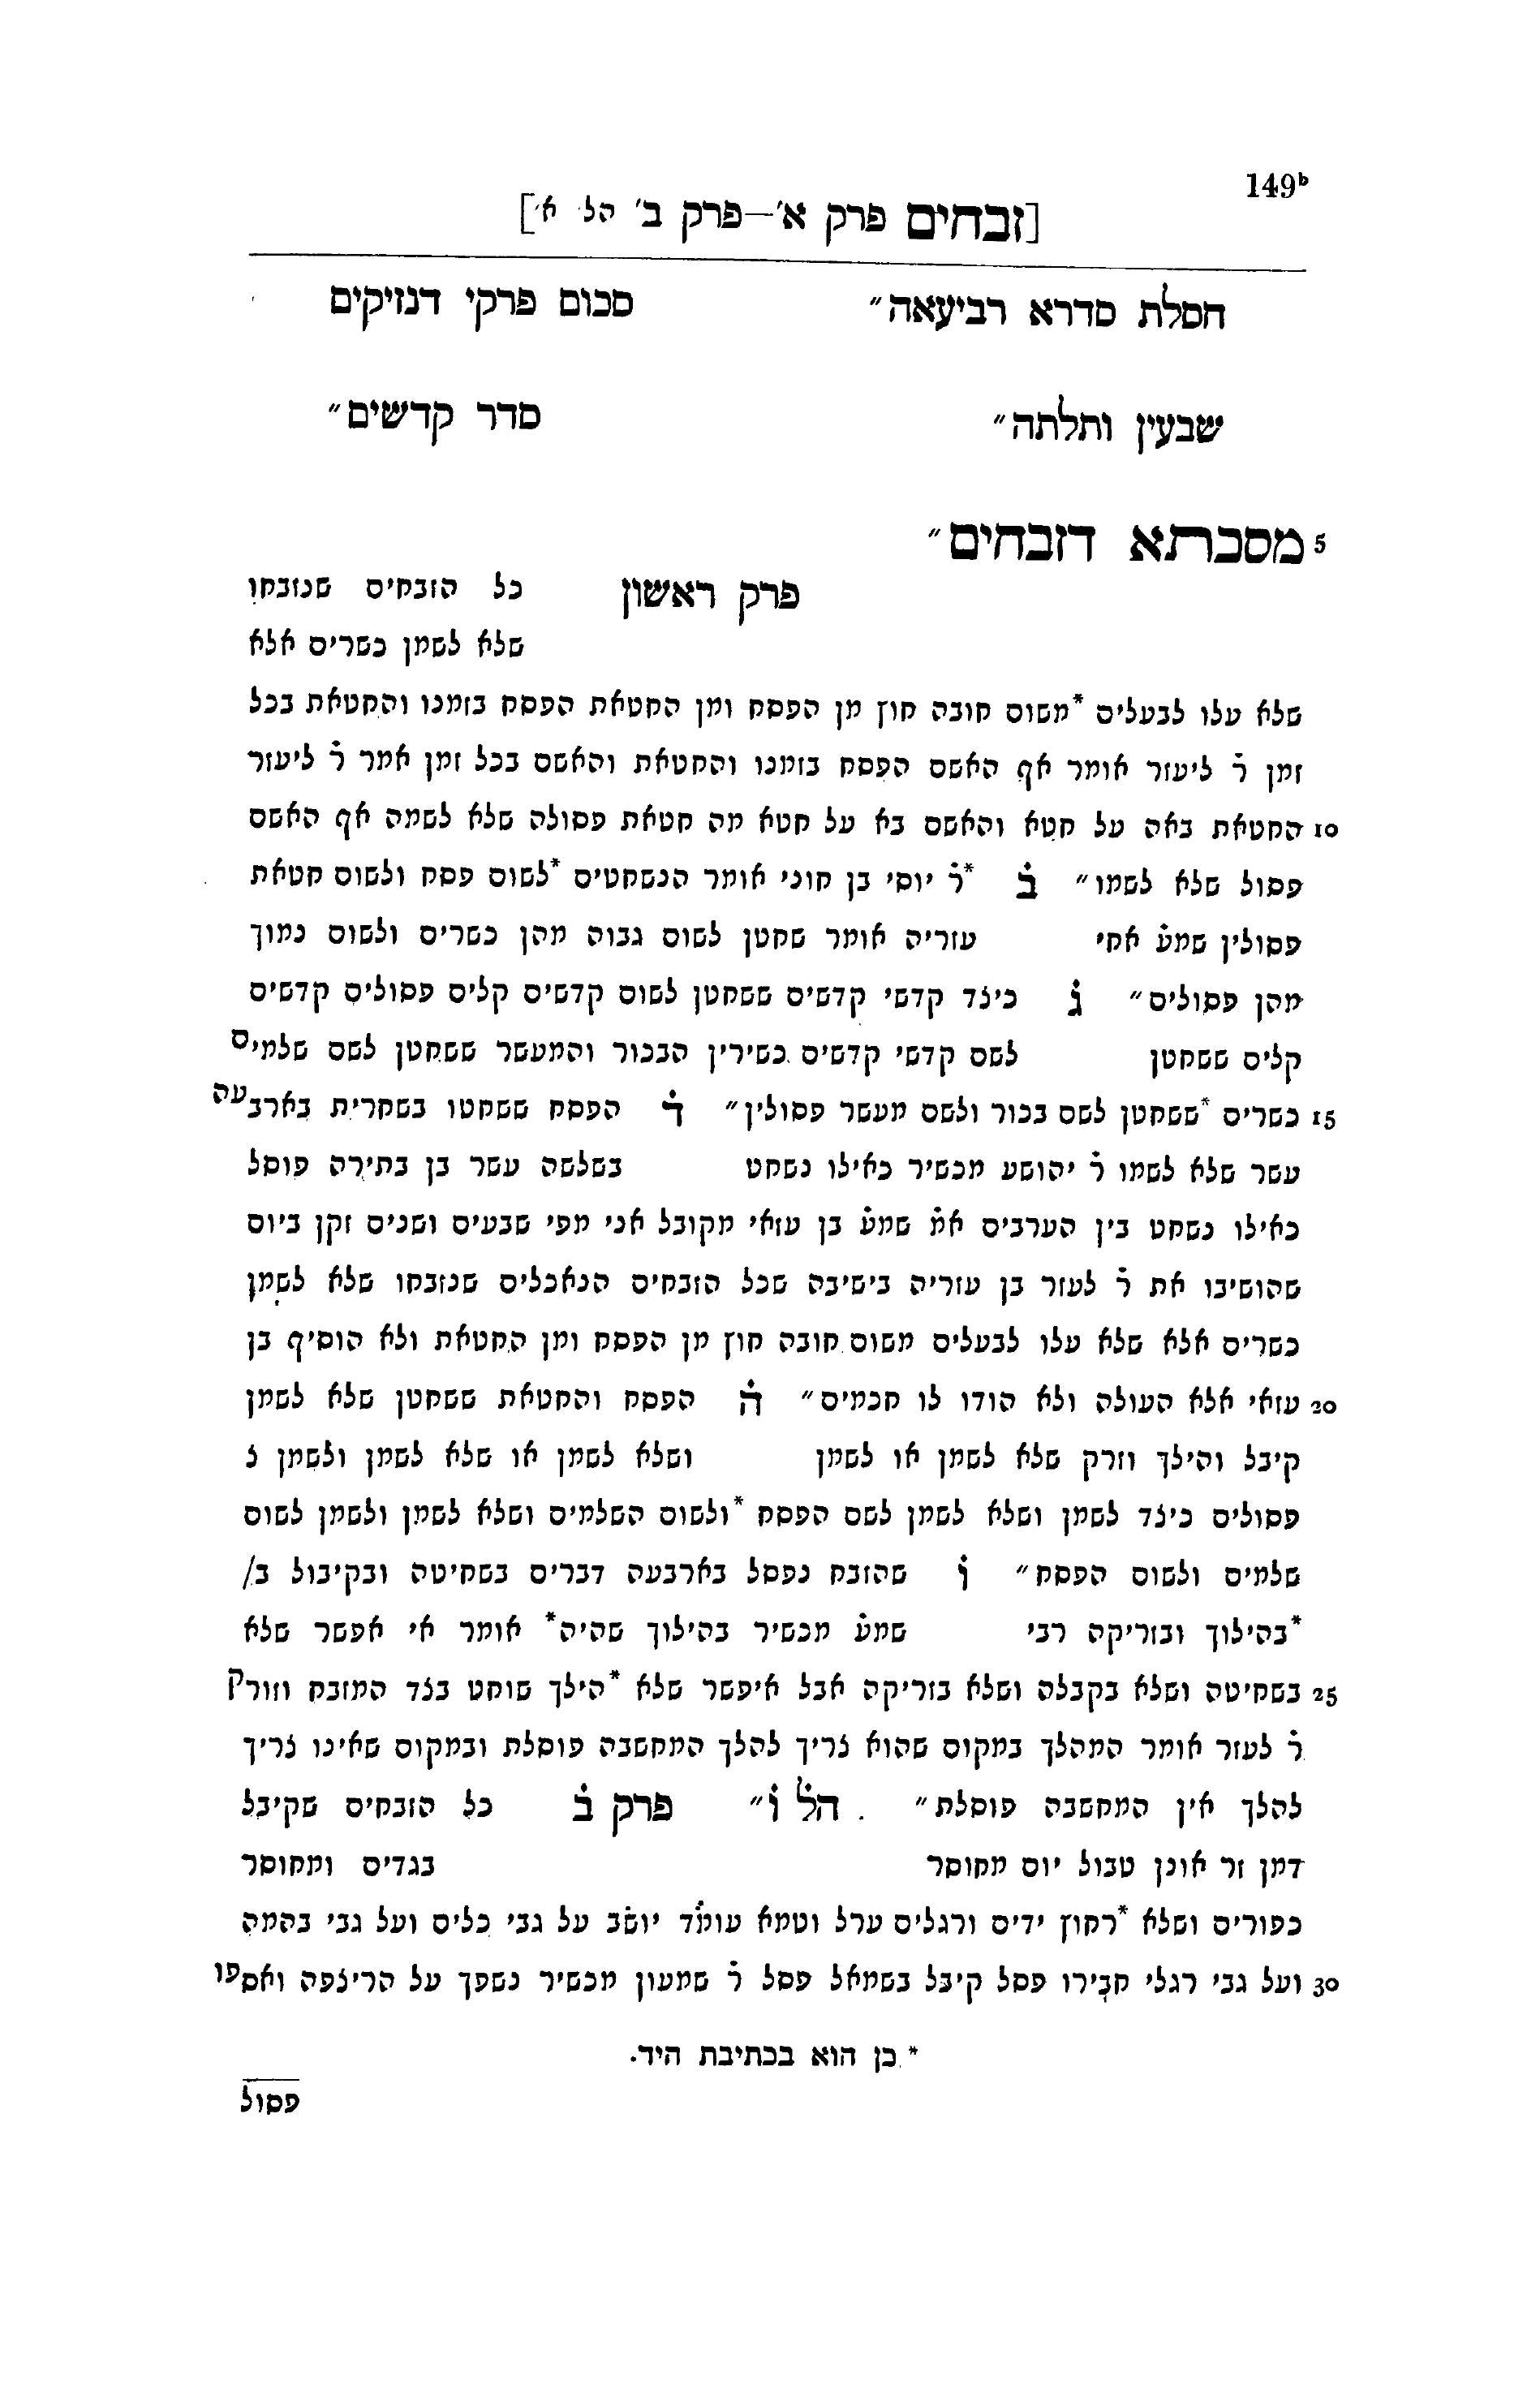 149ᵇ
[זבחים פרק א'—פרק ב' הל א']
חסלת סדרא רביעאה״ סכום פרקי דנזיקים
שבעין ותלתה״ סדר קדשים״
5 מסכתא דזבחים״
פרק ראשון כל הזבחים שנזבחו
שלא לשמן כשרים אלא
שלא עלו לבעלים *משום חובה חוץ מן הפסח ומן החטאת הפסח בזמנו והחטאת בכל
זמן ר̇ ליעזר אומר אף האשם הפסח בזמנו והחטאת והאשם בכל זמן אמר ר̇ ליעזר
10 החטאת באה על חטא והאשם בא על חטא מה חטאת פסולה שלא לשמה אף האשם
פסול שלא לשמו״ ב̇ *ר̇ יוסי בן חוני אומר הנשחטים *לשום פסח ולשום חטאת
פסולין שמע̇ אחי עזריה אומר שחטן לשום גבוה מהן כשרים ולשום נמוך
מהן פסולים״ ג̇ כיצד קדשי קדשים ששחטן לשום קדשים קלים פסולים קדשים
קלים ששחטן לשם קדשי קדשים כשירין הבכור והמעשר ששחטן לשם שלמים
15 כשרים *ששחטן לשם בכור ולשם מעשר פסולין״ ד̇ הפסח ששחטו בשחרית בארבעה
עשר שלא לשמו ר̇ יהושע מכשיר כאילו נשחט בשלשה עשר בן בתירה פוסל
כאילו נשחט בין הערבים אמ̇ שמע̇ בן עזאי מקובל אני מפי שבעים ושנים זקן ביום
שהושיבו את ר̇ לעזר בן עזריה בישיבה שכל הזבחים הנאכלים שנזבחו שלא לשמן
כשרים אלא שלא עלו לבעלים משום חובה חוץ מן הפסח ומן החטאת ולא הוסיף בן
20 עזאי אלא העולה ולא הודו לו חכמים״ ה̇ הפסח והחטאת ששחטן שלא לשמן
קיבל והילך וזרק שלא לשמן או לשמן ושלא לשמן או שלא לשמן ולשמן נ
פסולים כיצד לשמן ושלא לשמן לשם הפסח *ולשום השלמים ושלא לשמן ולשמן לשום
שלמים ולשום הפסח״ ו̇ שהזבח נפסל בארבעה דברים בשחיטה ובקיבול ב/
*בהילוך ובזריקה רבי שמע̇ מכשיר בהילוך שהיה* אומר אי אפשר שלא
25 בשחיטה ושלא בקבלה ושלא בזריקה אבל איפשר שלא *הילך שוחט בצד המזבח וזורק
ר̇ לעזר אומר המהלך במקום שהוא צריך להלך המחשבה פוסלת ובמקום שאינו צריך
להלך אין המחשבה פוסלת״ הל̇ ו̇״ פרק ב̇ כל הזבחים שקיבל
דמן זר אונן טבול יום מחוסר בגדים ומחוסר
כפורים ושלא *רחוץ ידים ורגלים ערל וטמא עומד יושב על גבי כלים ועל גבי בהמה
30 ועל גבי רגלי חבירו פסל קיבל בשמאל פסל ר̇ שמעון מכשיר נשפך על הריצפה ואספו
* כן הוא בכתיבת היד.
פסול